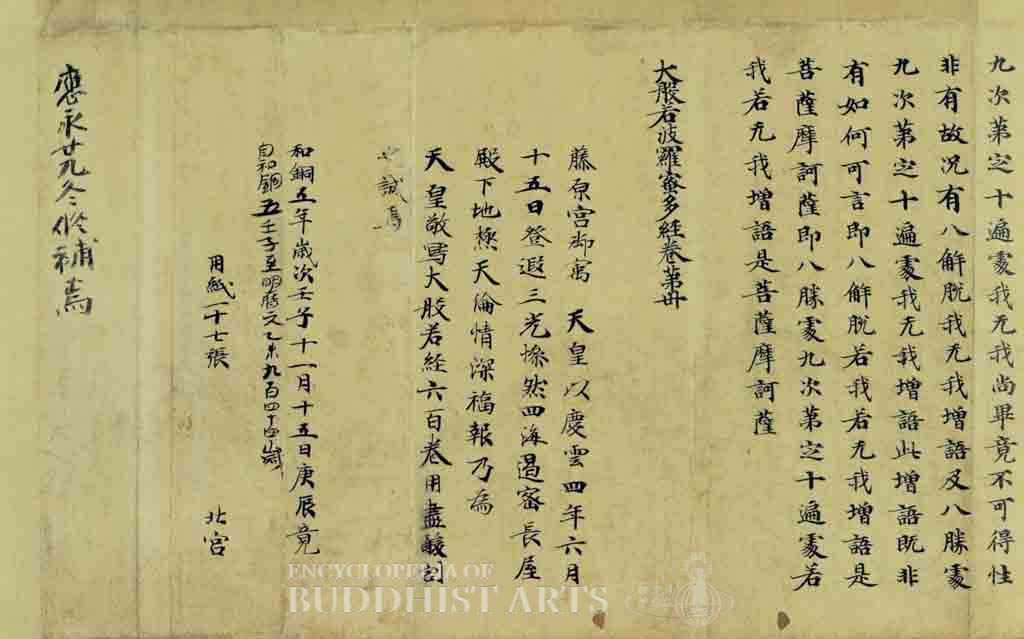 九次第定十遍處我无我尚畢竟不可得性
非有故况有八解脫我无我增語及八勝處
九次第定十遍處我无我增語此增語既非
有如何可言即八解脫若我若无我增語是
菩薩摩訶薩即八勝處九次第定十遍處若
我若无我增語是菩薩摩訶薩
大般若波羅蜜多経卷第卅
藤原宮御寓 天皇以慶雲四年六月
十五日登遐三光慘然四海遏密長屋
殿下地極天倫情深福報乃為
天皇敬寫大般若経六百卷用盡酸割
之誠焉
和銅五年歲次壬子十一月十五日庚辰竟
自和銅五壬子至明暦元乙未九百四十四歲
用紙一十七張 北宮
應永廿九冬修補焉
ENCYCLOPEDIA OF
BUDDHIST ARTS